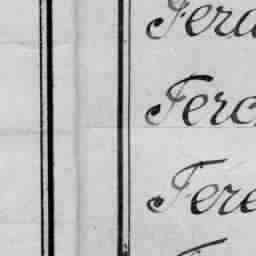 Ferd
Ferc
Fere